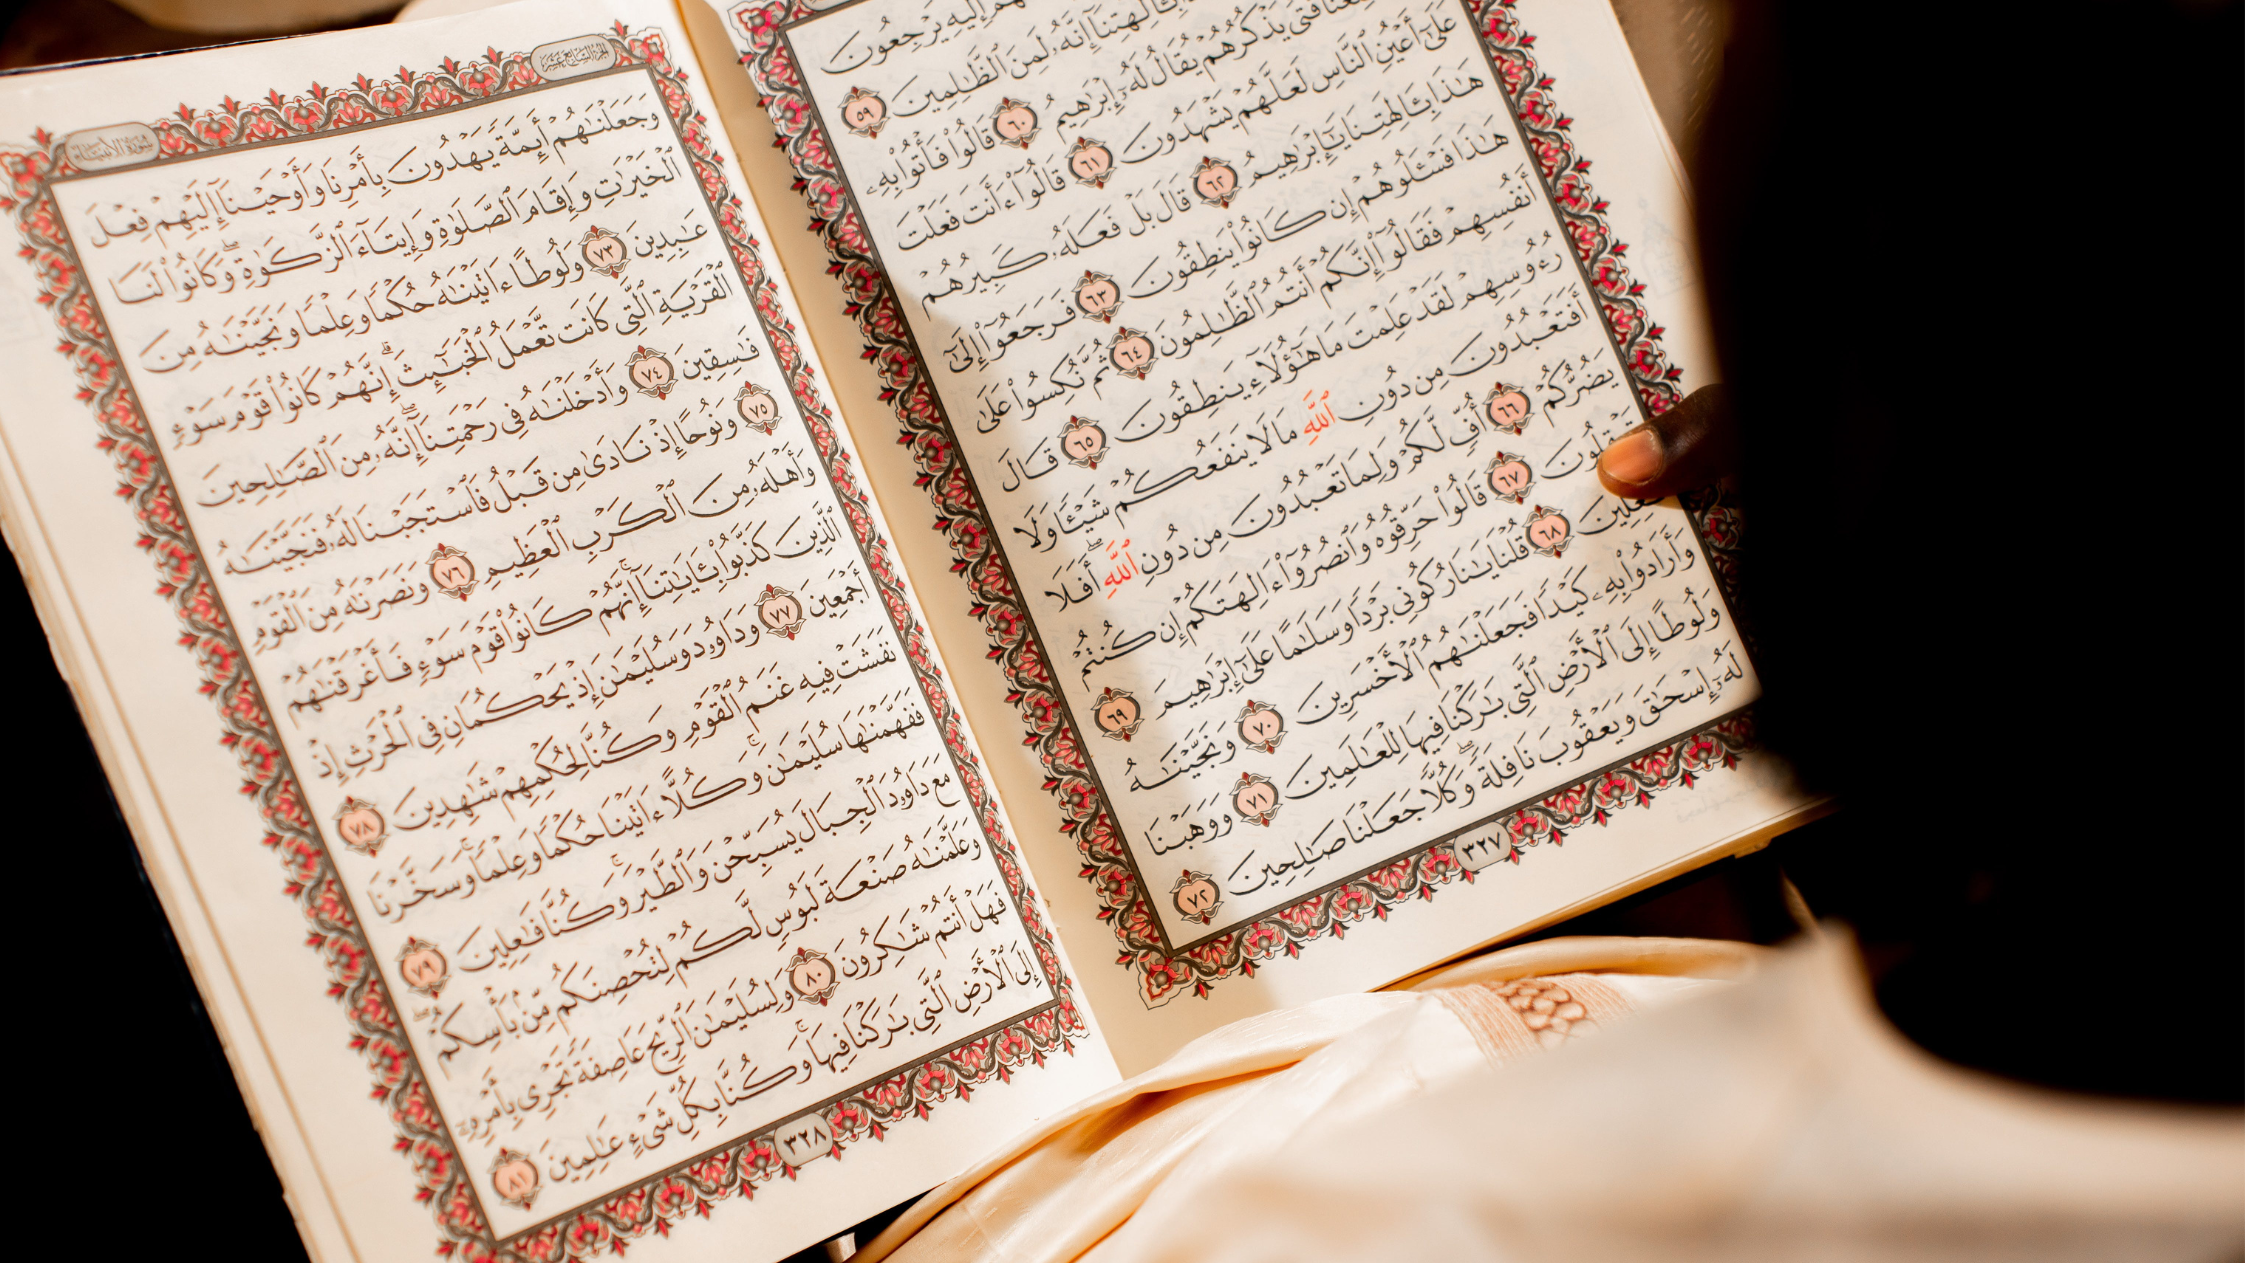 هُمْ إِلَيْهِ يَرْجِعُونَ
عَلَىٰٓ أَعْيُنِ ٱلنَّاسِ لَعَلَّهُمْ يَشْهَدُونَ ٦١ قَالُوٓا۟ ءَأَنتَ فَعَلْتَ
هَٰذَا بِـَٔالِهَتِنَا يَٰٓإِبْرَٰهِيمُ ٦٢ قَالَ بَلْ فَعَلَهُۥ كَبِيرُهُمْ
هَٰذَا فَسْـَٔلُوهُمْ إِن كَانُوا۟ يَنطِقُونَ ٦٣ فَرَجَعُوٓا۟ إِلَىٰٓ
أَنفُسِهِمْ فَقَالُوٓا۟ إِنَّكُمْ أَنتُمُ ٱلظَّٰلِمُونَ ٦٤ ثُمَّ نُكِسُوا۟ عَلَىٰ
رُءُوسِهِمْ لَقَدْ عَلِمْتَ مَا هَٰٓؤُلَآءِ يَنطِقُونَ ٦٥ قَالَ
أَفَتَعْبُدُونَ مِن دُونِ ٱللَّهِ مَا لَا يَنفَعُكُمْ شَيْـًٔا وَلَا
يَضُرُّكُمْ ٦٦ أُفٍّ لَّكُمْ وَلِمَا تَعْبُدُونَ مِن دُونِ ٱللَّهِ ۖ أَفَلَا
٦٧ قَالُوا۟ حَرِّقُوهُ وَٱنصُرُوٓا۟ ءَالِهَتَكُمْ إِن كُنتُمْ
٦٨ قُلْنَا يَٰنَارُ كُونِى بَرْدًا وَسَلَٰمًا عَلَىٰٓ إِبْرَٰهِيمَ ٦٩
وَأَرَادُوا۟ بِهِۦ كَيْدًا فَجَعَلْنَٰهُمُ ٱلْأَخْسَرِينَ ٧٠ وَنَجَّيْنَٰهُ
وَلُوطًا إِلَى ٱلْأَرْضِ ٱلَّتِى بَٰرَكْنَا فِيهَا لِلْعَٰلَمِينَ ٧١ وَوَهَبْنَا
لَهُۥٓ إِسْحَٰقَ وَيَعْقُوبَ نَافِلَةً ۖ وَكُلًّا جَعَلْنَا صَٰلِحِينَ ٧٢
٣٢٧
الجزء السابع عشر
سورة الأنبياء
وَجَعَلْنَٰهُمْ أَئِمَّةً يَهْدُونَ بِأَمْرِنَا وَأَوْحَيْنَآ إِلَيْهِمْ فِعْلَ
ٱلْخَيْرَٰتِ وَإِقَامَ ٱلصَّلَوٰةِ وَإِيتَآءَ ٱلزَّكَوٰةِ ۖ وَكَانُوا۟ لَنَا
عَٰبِدِينَ ٧٣ وَلُوطًا ءَاتَيْنَٰهُ حُكْمًا وَعِلْمًا وَنَجَّيْنَٰهُ مِنَ
ٱلْقَرْيَةِ ٱلَّتِى كَانَت تَّعْمَلُ ٱلْخَبَٰٓئِثَ ۗ إِنَّهُمْ كَانُوا۟ قَوْمَ سَوْءٍ
فَٰسِقِينَ ٧٤ وَأَدْخَلْنَٰهُ فِى رَحْمَتِنَآ ۖ إِنَّهُۥ مِنَ ٱلصَّٰلِحِينَ
٧٥ وَنُوحًا إِذْ نَادَىٰ مِن قَبْلُ فَٱسْتَجَبْنَا لَهُۥ فَنَجَّيْنَٰهُ
وَأَهْلَهُۥ مِنَ ٱلْكَرْبِ ٱلْعَظِيمِ ٧٦ وَنَصَرْنَٰهُ مِنَ ٱلْقَوْمِ
ٱلَّذِينَ كَذَّبُوا۟ بِـَٔايَٰتِنَآ ۚ إِنَّهُمْ كَانُوا۟ قَوْمَ سَوْءٍ فَأَغْرَقْنَٰهُمْ
أَجْمَعِينَ ٧٧ وَدَاوُۥدَ وَسُلَيْمَٰنَ إِذْ يَحْكُمَانِ فِى ٱلْحَرْثِ إِذْ
نَفَشَتْ فِيهِ غَنَمُ ٱلْقَوْمِ وَكُنَّا لِحُكْمِهِمْ شَٰهِدِينَ ٧٨
فَفَهَّمْنَٰهَا سُلَيْمَٰنَ ۚ وَكُلًّا ءَاتَيْنَا حُكْمًا وَعِلْمًا ۚ وَسَخَّرْنَا
مَعَ دَاوُۥدَ ٱلْجِبَالَ يُسَبِّحْنَ وَٱلطَّيْرَ ۚ وَكُنَّا فَٰعِلِينَ ٧٩
وَعَلَّمْنَٰهُ صَنْعَةَ لَبُوسٍ لَّكُمْ لِتُحْصِنَكُم مِّنۢ بَأْسِكُمْ ۖ
فَهَلْ أَنتُمْ شَٰكِرُونَ ٨٠ وَلِسُلَيْمَٰنَ ٱلرِّيحَ عَاصِفَةً تَجْرِى بِأَمْرِهِۦٓ
إِلَى ٱلْأَرْضِ ٱلَّتِى بَٰرَكْنَا فِيهَا ۚ وَكُنَّا بِكُلِّ شَىْءٍ عَٰلِمِينَ ٨١
٣٢٨